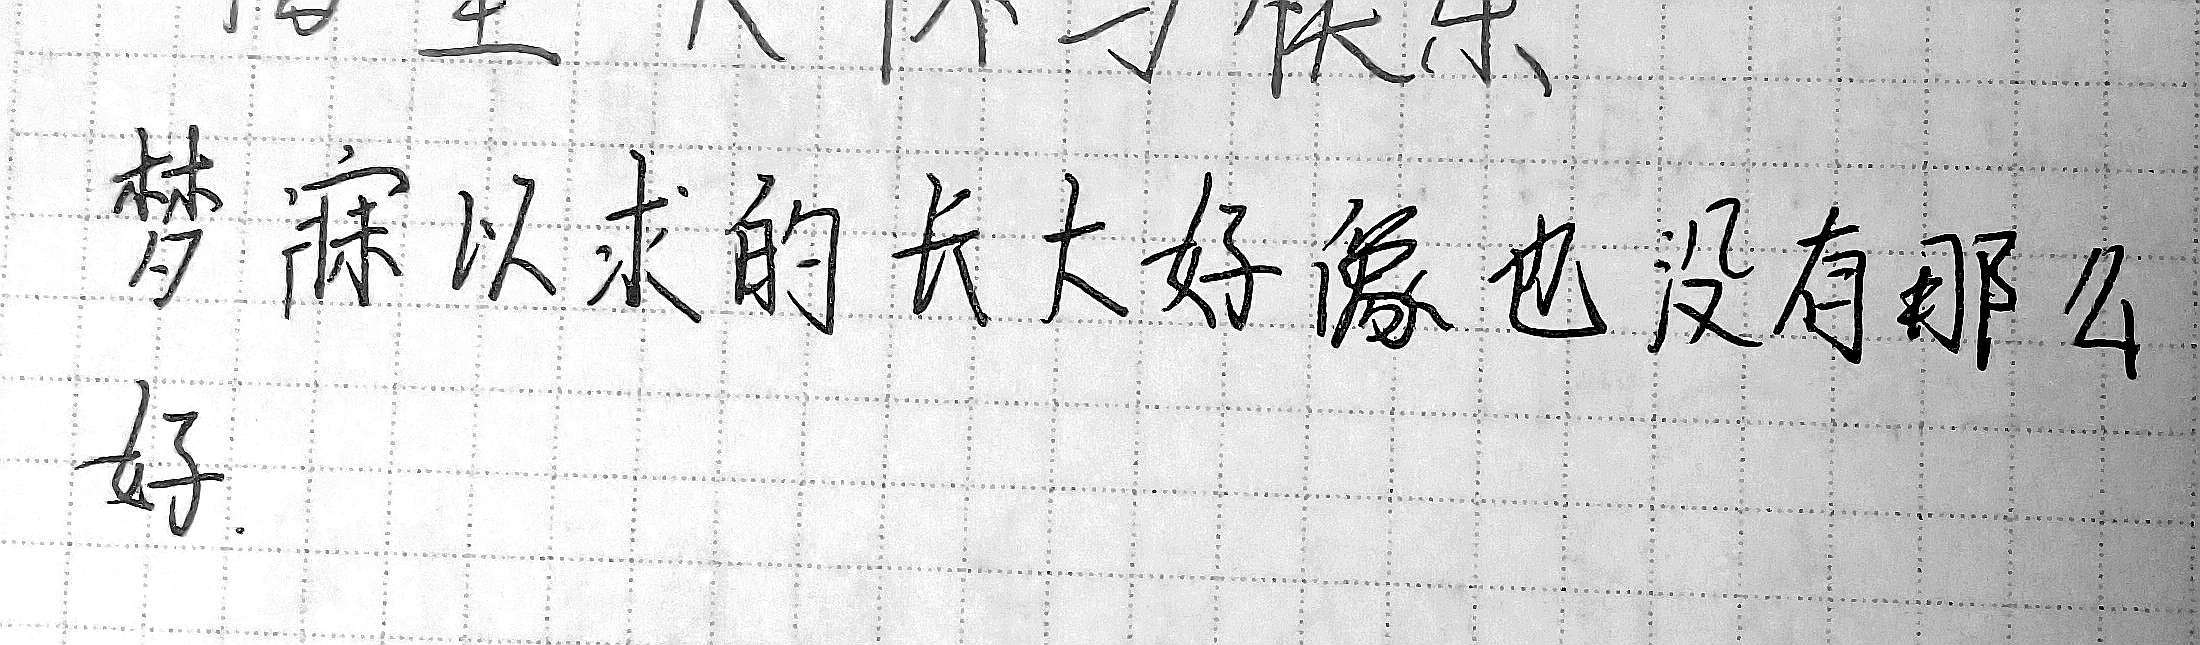 梦寐以求的长大好像也没有那么
好.